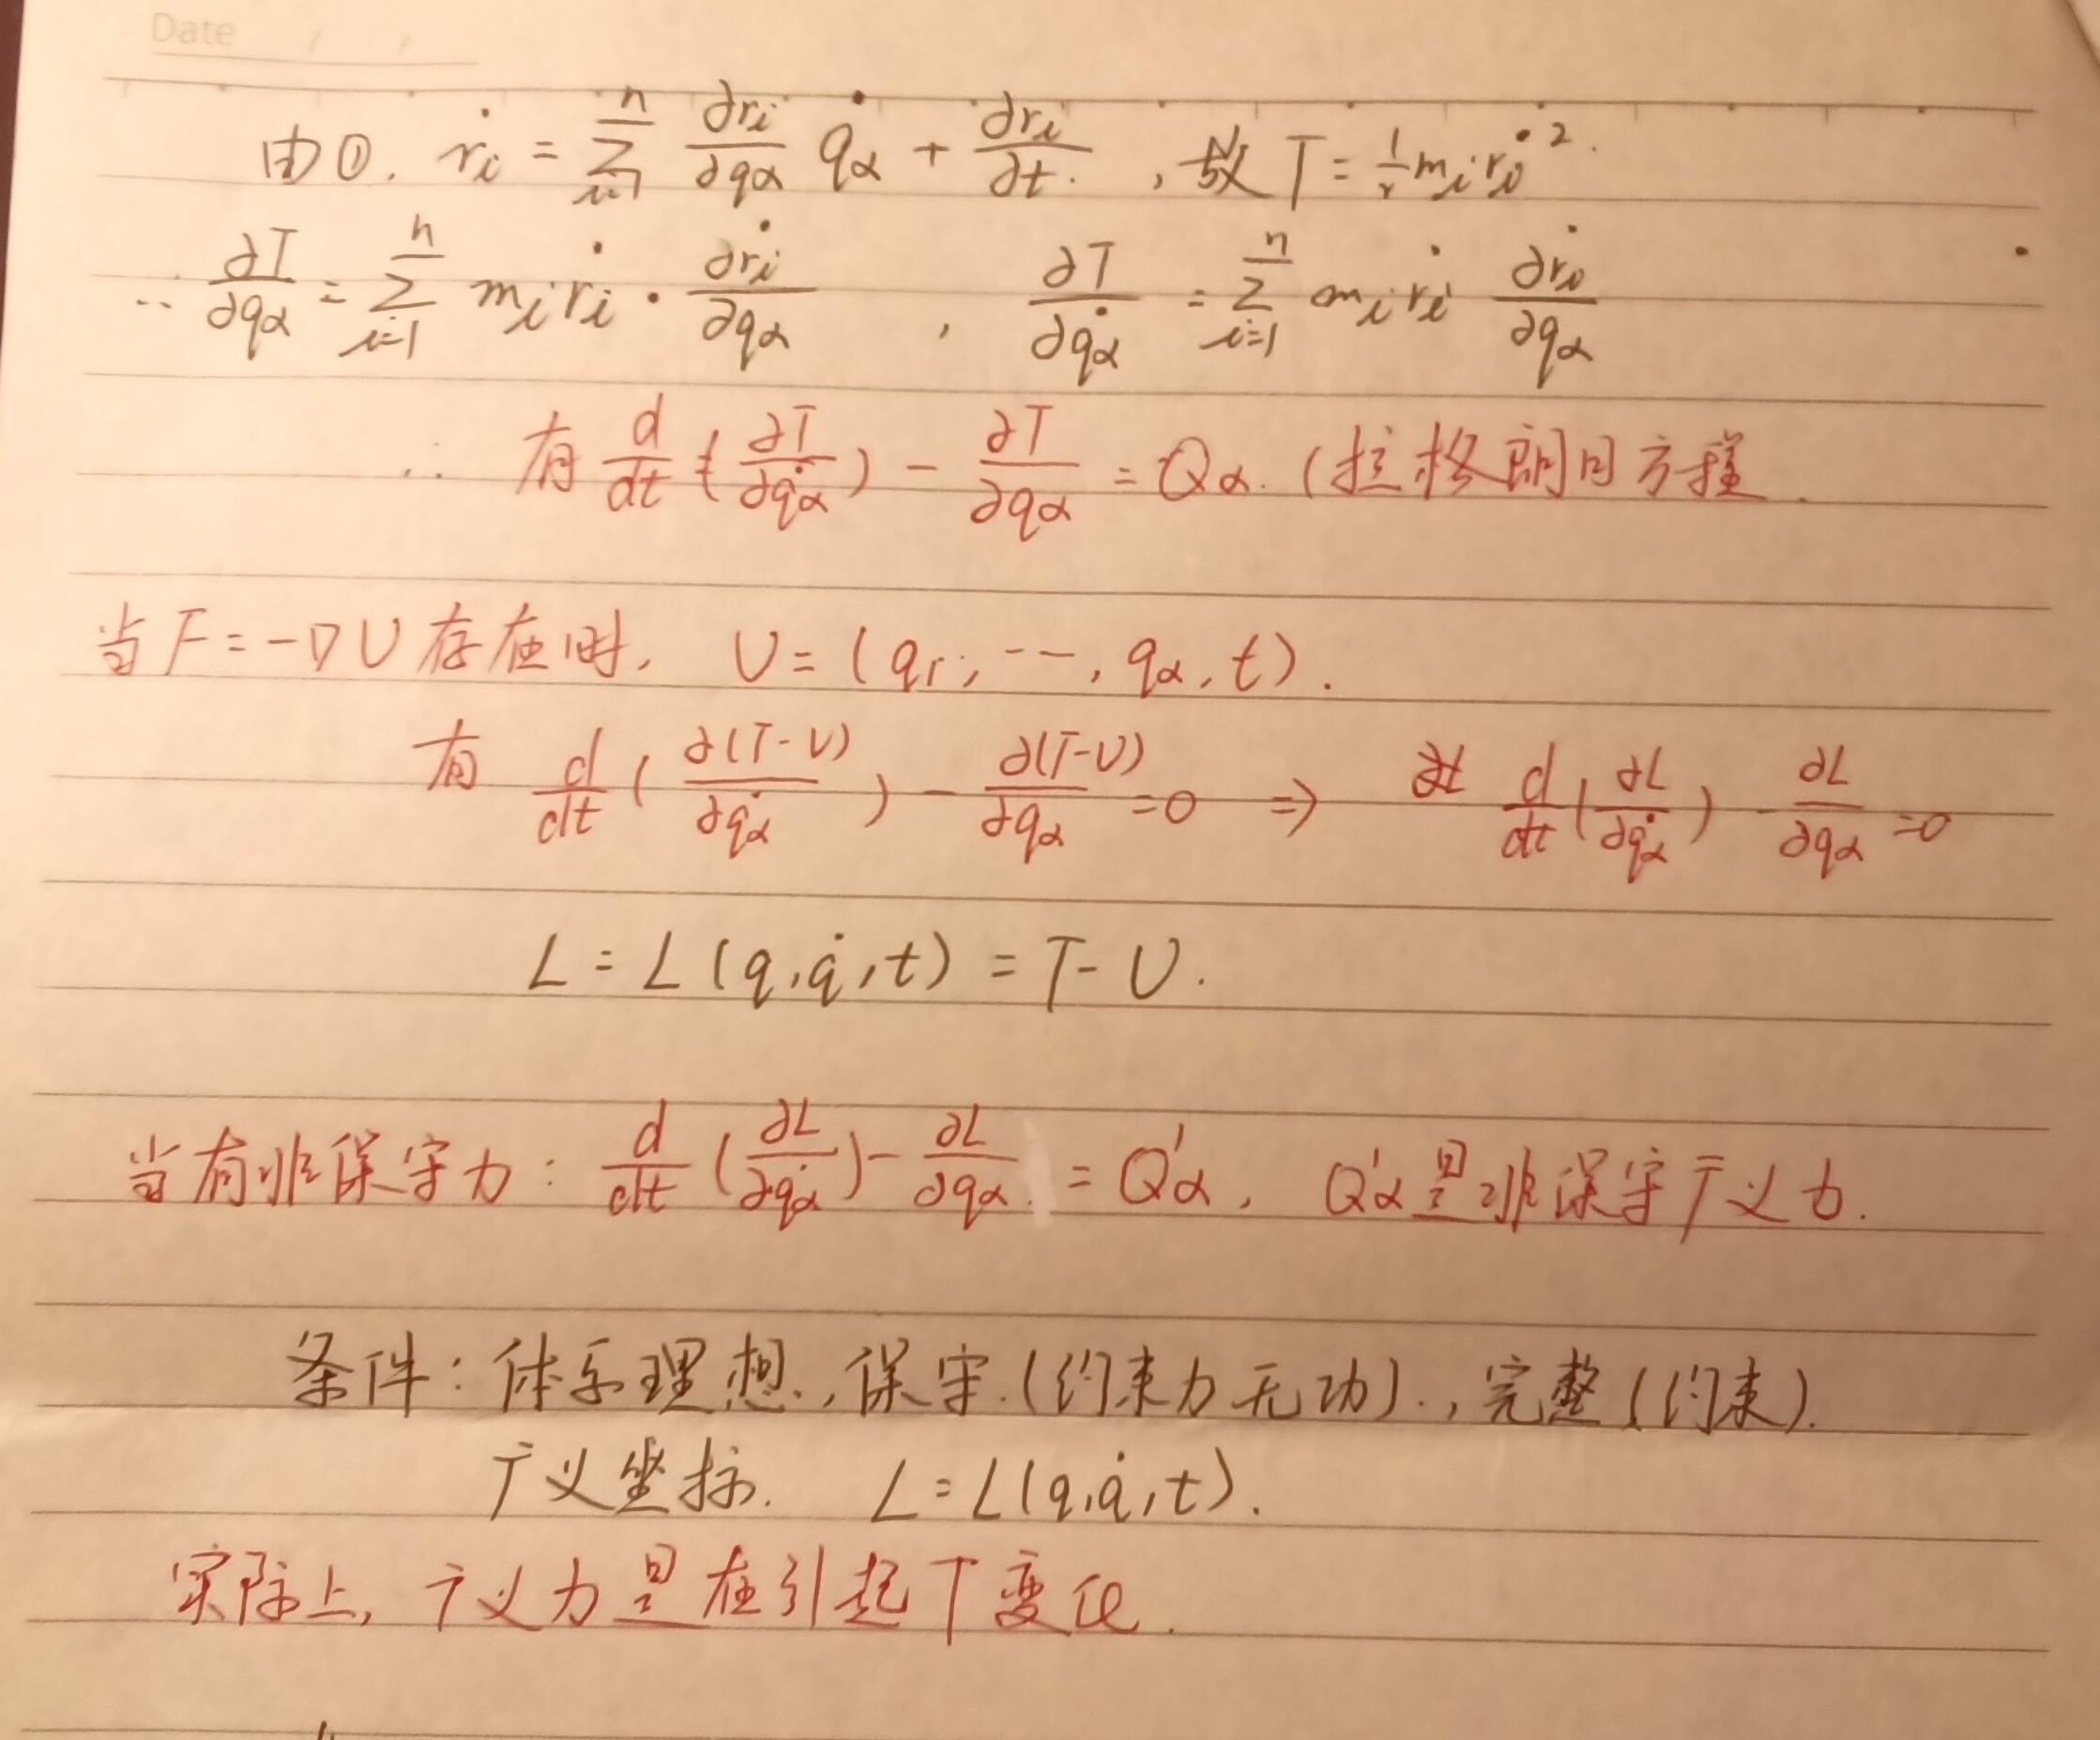 Date / /
由①. ṙᵢ = ∑ⁿᵢ₌₁ ∂rᵢ/∂qα q̇α + ∂rᵢ/∂t. , 故 T = ½ mᵢ ṙᵢ².
∴ ∂T/∂qα = ∑ⁿᵢ₌₁ mᵢ ṙᵢ · ∂ṙᵢ/∂qα , ∂T/∂q̇α = ∑ⁿᵢ₌₁ mᵢ ṙᵢ ∂ṙᵢ/∂qα
∴ 有 d/dt (∂T/∂q̇α) - ∂T/∂qα = Qα. (拉格朗日方程.
当 F = -∇U 存在时, U = (q₁, ---, qα, t).
有 d/dt (∂(T-U)/∂q̇α) - ∂(T-U)/∂qα = 0 ⇒ d/dt (∂L/∂q̇α) - ∂L/∂qα = 0
L = L(q, q̇, t) = T - U.
当有非保守力: d/dt (∂L/∂q̇α) - ∂L/∂qα = Q'α, Q'α是非保守广义力.
条件: 体系理想, 保守.(约束力无功)., 完整(约束).
广义坐标. L = L(q, q̇, t).
实际上, 广义力是在引起T变化.